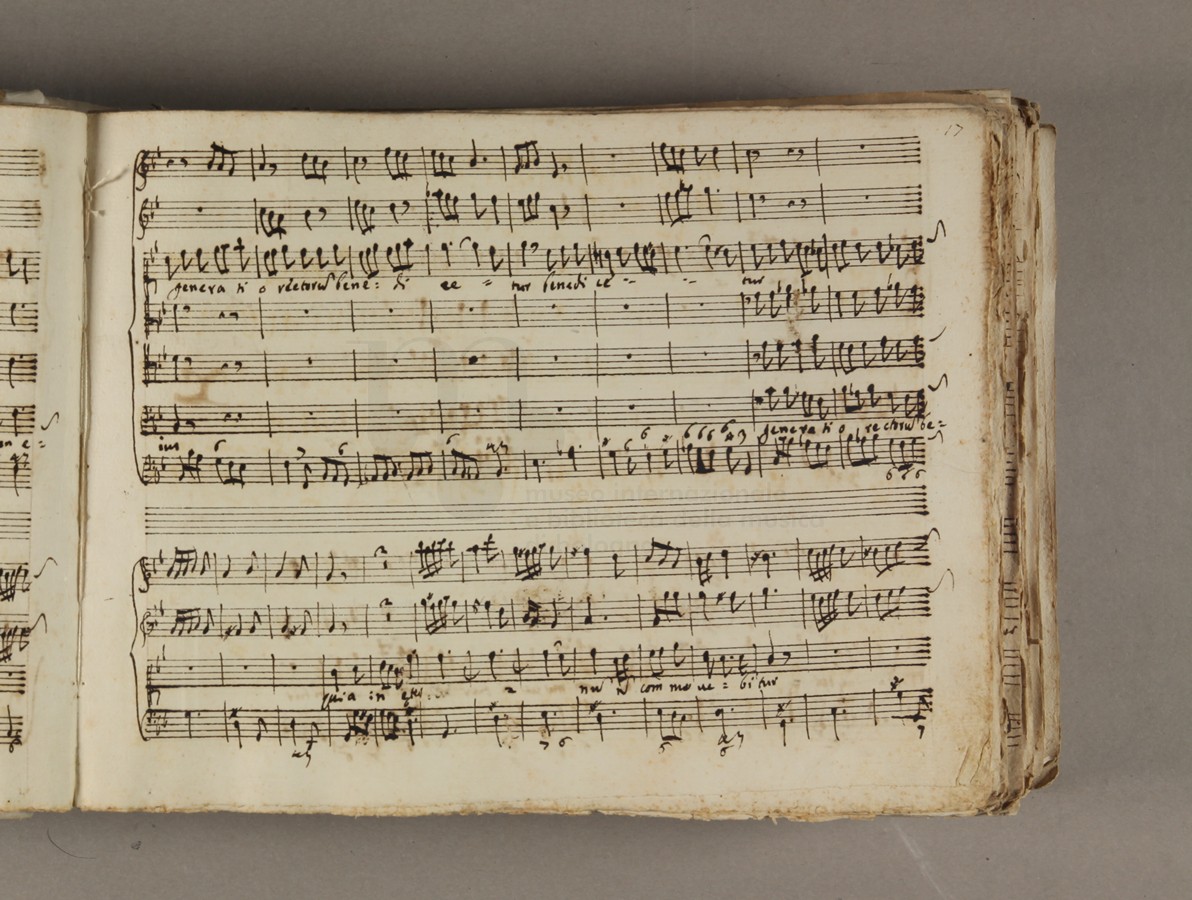 17
genera ti o rectorū bene: di ce - tur benedi ce - - - tur
ius
genera ti o rectorū be=
museo internazionale
e biblioteca della musica
di bologna
quia in eter... nū nō com mo ve = bi tur